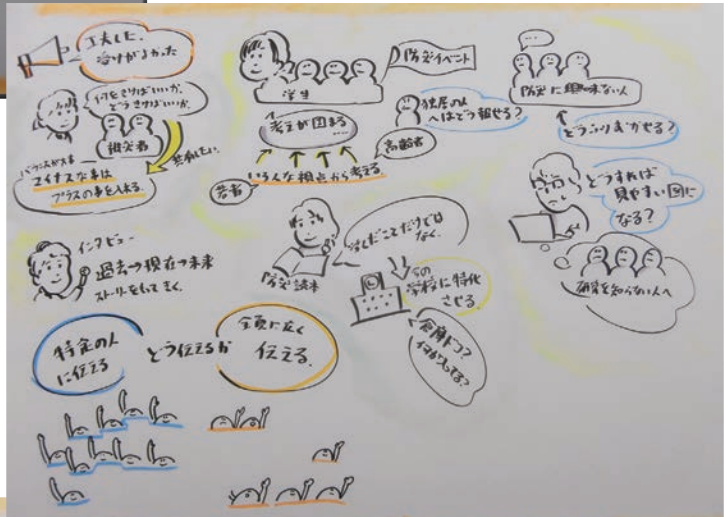 工夫した、
受けがよかった
何をきけばいいか、
どうきけばいいか。
被災者
共有したい。
バランスが大事
マイナスな事は
プラスの事を入れる。
学生
防災イベント
考えが固まる
……
若者
高齢者
いろんな視点から考える
独居の人
へはどう報せる?
…
防災に興味ない人
どうふりむかせる?
どうすれば
見やすい図に
なる?
研究を知らない人へ
インタビュー
過去→現在→未来
ストーリーをもってきく。
防災読本
学んだことだけでは
なく、
学校に特化
させる
倉庫ドコ?
何が入ってる?
特定の人
に伝える
どう伝えるか
全員に広く
伝える。